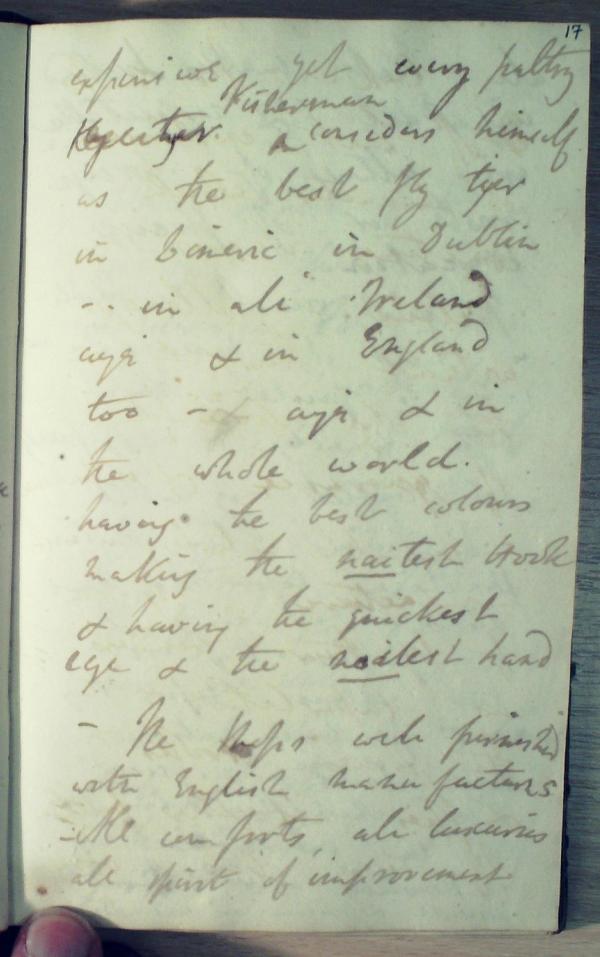 17
expensive yet every paltry
Fisherman
considers himself
as the best fly tyer
in Limeric in Dublin
-- in all Ireland
aye & in England
too - & aye & in
the whole world.
having the best colours
making the naitest Hook
& having the quickest
eye & the naitest hand
- The shops well furnished
with English manufactures
- All comforts, all luxuries
all spirit of improvement